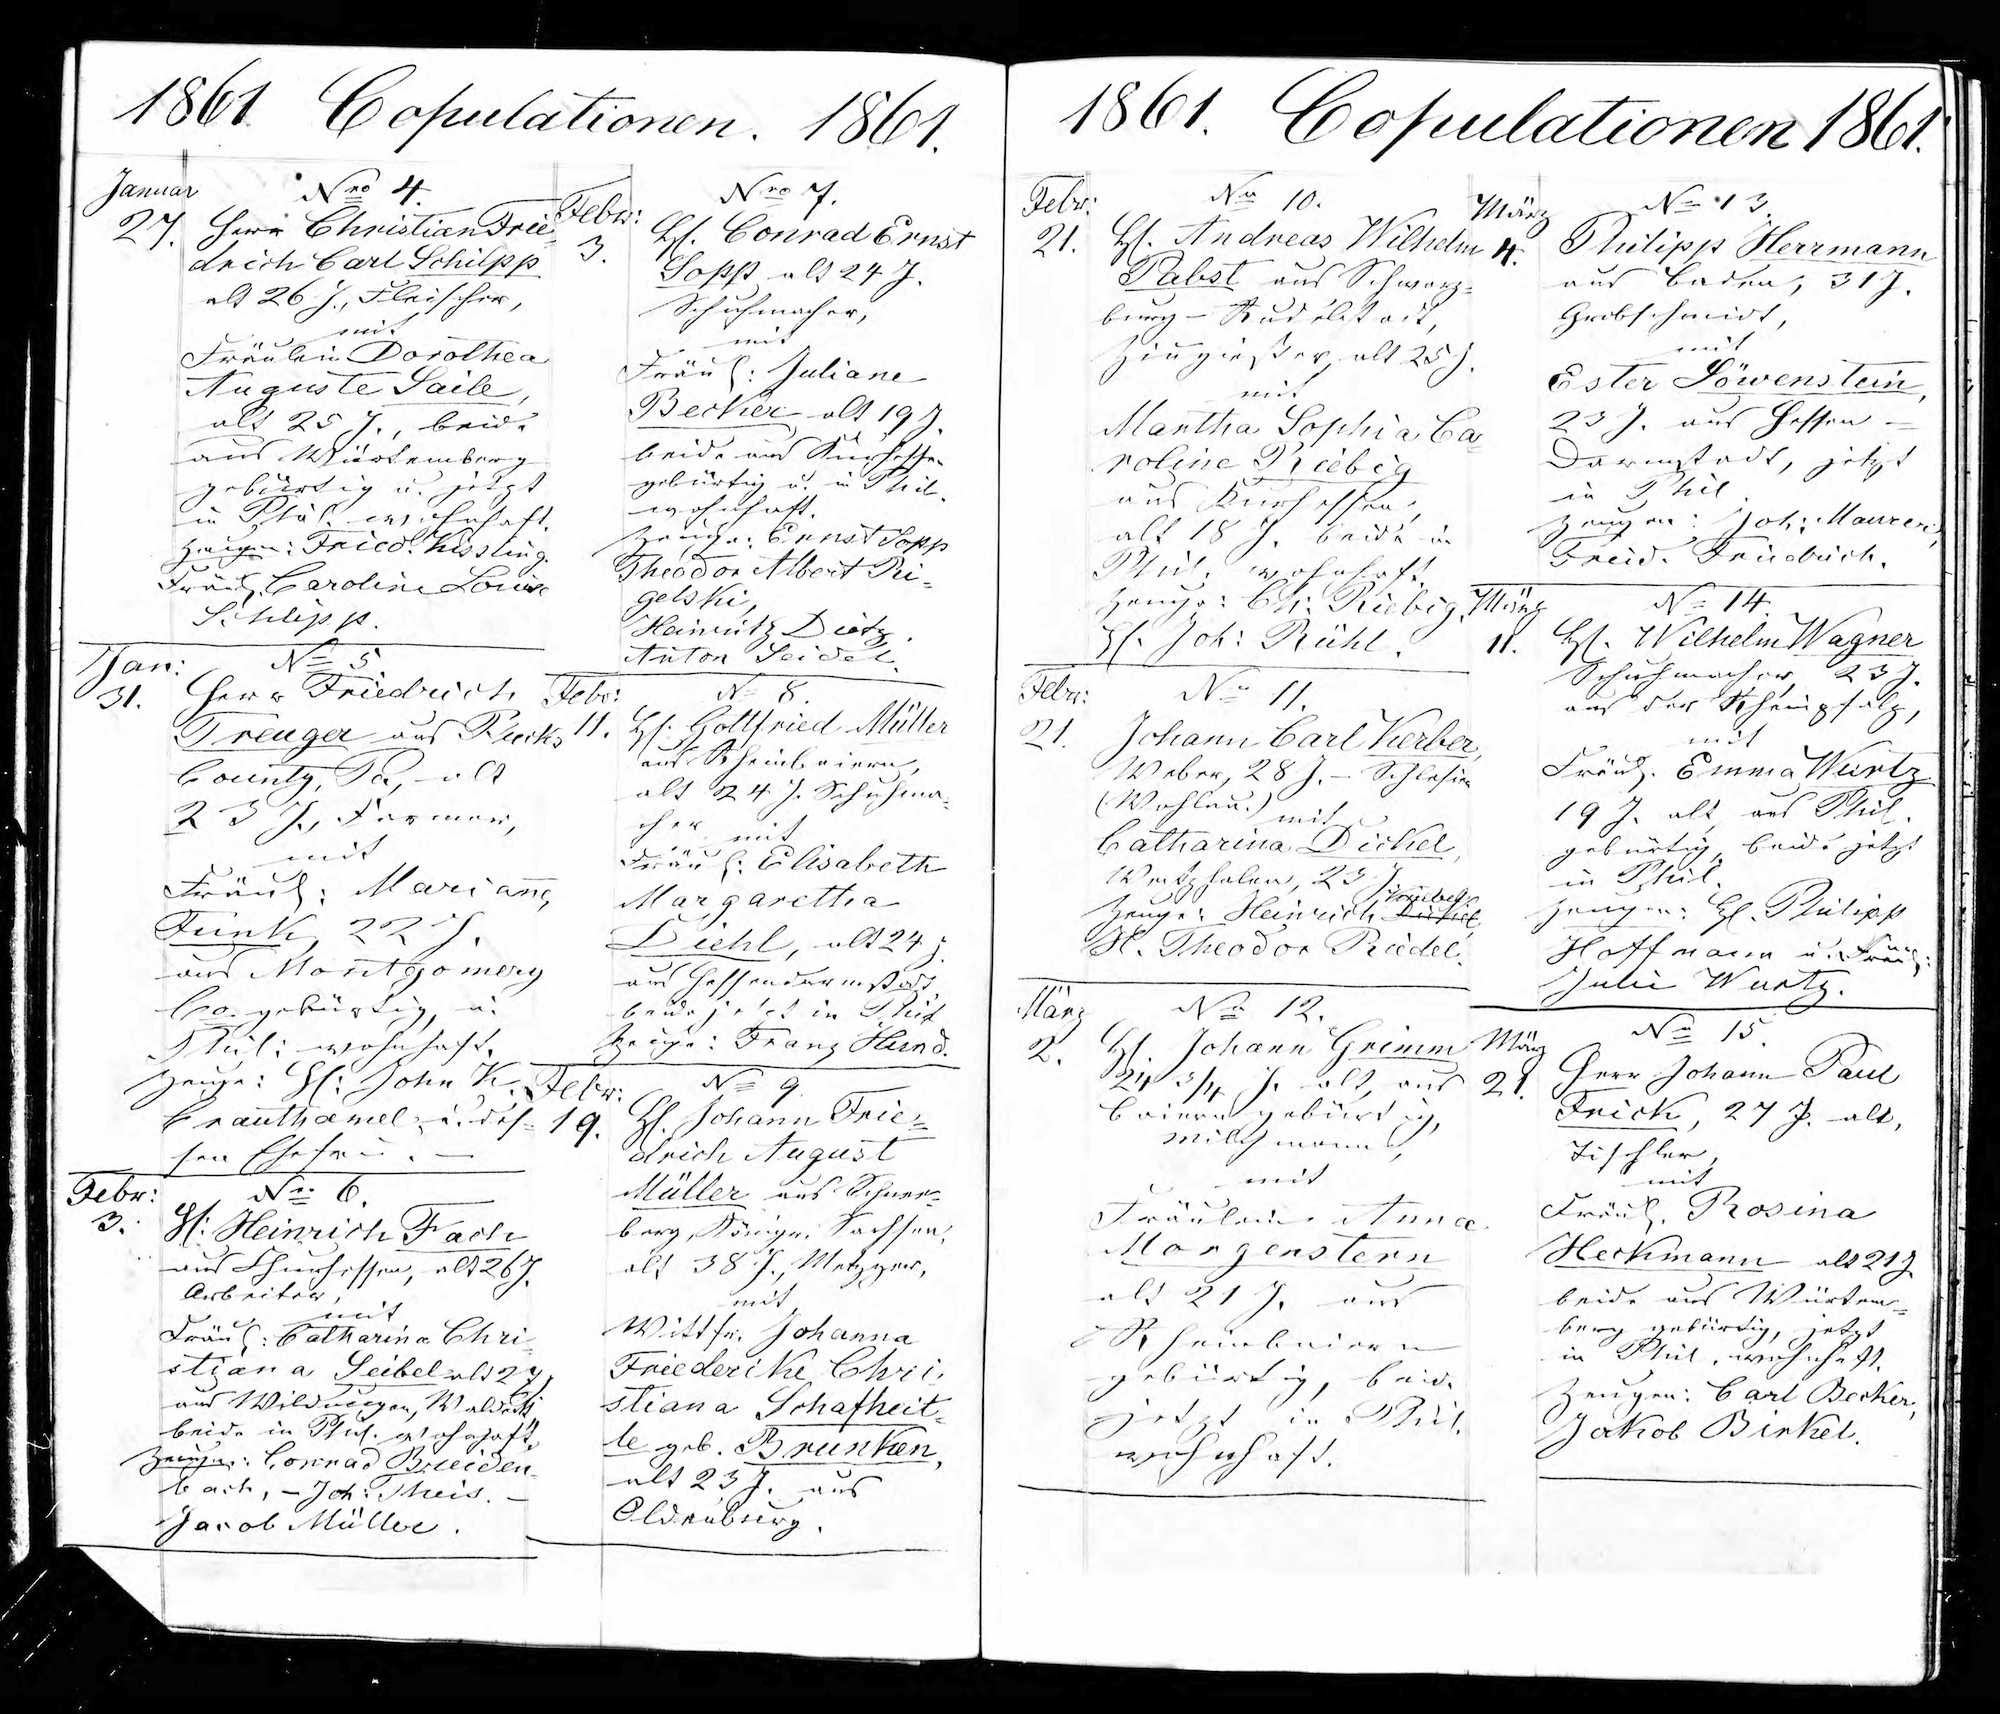 1861. Copulationen. 1861.
Januar
27.
Nro 4.
Herr Christian Frie-
drich Carl Schilpp
alt 26 J., Fleischer,
mit
Fräulein Dorothea
Auguste Saile,
alt 25 J., beide
aus Würtemberg
gebürtig u. jetzt
in Phil. wohnhaft.
Zeugen: Fried. Kissling.
Fräul. Caroline Louise
Schlipp.
Jan:
31.
No 5.
Herr Friedrich
Treuger aus Bucks
County, Pa, alt
23 J., Farmer,
mit
Fräul: Mariann̅e,
Funk, 22 J.
aus Montgomery
Co. gebürtig, u.
Phil: wohnhaft.
Zeuge: H: John K.
Crauthamel u. des-
sen Ehefrau. —
Febr:
3.
No 6.
H: Heinrich Fach
aus Churhessen, alt 26 J.
Arbeiter,
mit
Fräul: Catharina Chri-
stiana Seibel alt 27,
aus Wildungen, Waldeck
beide in Phil. wohnhaft.
Zeugen: Conrad Breiden-
bach, – Joh: Theis. –
Jacob Müller.
Febr:
3.
Nro 7.
H. Conrad Ernst
Sopp alt 24 J.
Schuhmacher,
mit
Fräul: Juliane
Becker alt 19 J.
beide aus Kurhessen
gebürtig u. in Phil.
wohnhaft.
Zeuge: Ernst Sopp
Theodor Albert Pri-
gelski,
Heinrich Dietz.
Anton Seidel.
Febr:
11.
No 8.
H: Gottfried Müller
aus Rheinbaiern,
alt 24 J. Schuhma-
cher mit
Fräul: Elisabeth
Margaretha
Diehl, alt 24 J.
aus Hessendarmstadt
beide jetzt in Phil
Zeuge: Franz Hund.
Febr:
19.
No 9.
H. Johann Frie-
drich August
Müller aus Schnee-
berg, Königr. Sachsen,
alt 38 J., Metzger,
mit
Wittfr. Johanna
Friederike Chri-
stiana Schafheit-
le geb. Brunken,
alt 23 J. aus
Oldenburg.
1861. Copulationen 1861.
Febr:
21.
No 10.
H. Andreas Wilhelm
Pabst aus Schwarz-
burg – Rudelstadt,
Zinngießer, alt 25 J.
mit
Martha Sophia Ca-
roline Riebig
aus Kurhessen,
alt 18 J. beide in
Phil. wohnhaft.
Zeuge: Ch: Riebig,
H. Joh: Rühl.
Febr:
21.
No 11.
Johann Carl Kerber,
Weber, 28 J. – Schlesien
(Wohlau.) mit
Catharina Dickel,
Westphalen, 23 J.
Zeuge: Heinrich
H. Theodor Riedel.
März
2.
No 12.
H. Johann Grimm
24 3/4 J. alt, aus
Baiern gebürtig,
Milchmann,
mit
Fräulein Anna
Morgenstern
alt 21 J. aus
Rheinbaiern
gebürtig, beide
jetzt in Phil.
wohnhaft.
März
4.
No 13.
Philipp Herrmann
aus Baden, 31 J.
Grobschmidt,
mit
Ester Löwenstein,
23 J. aus Hessen –
Darmstadt, jetzt
in Phil.
Zeugen: Joh: Maurer,
Freid. Friebuch.
März
11.
No 14.
H. Wilhelm Wagner
Schuhmacher, 23 J.
aus der Rheinpfalz,
mit
Fräul. Emma Wurtz
19 J. alt, aus Phil.
gebürtig, beide jetzt
in Phil.
Zeugen: H. Philipp
Hoffmann u. Fräul:
Julie Wurtz.
März
21.
No 15.
Herr Johann Paul
Frick, 27 J. alt,
Tischler,
mit
Fräul. Rosina
Heckmann alt 21 J.
beide aus Würtem-
berg gebürtig, jetzt
in Phil. wohnhaft.
Zeugen: Carl Becker,
Jakob Birkel.